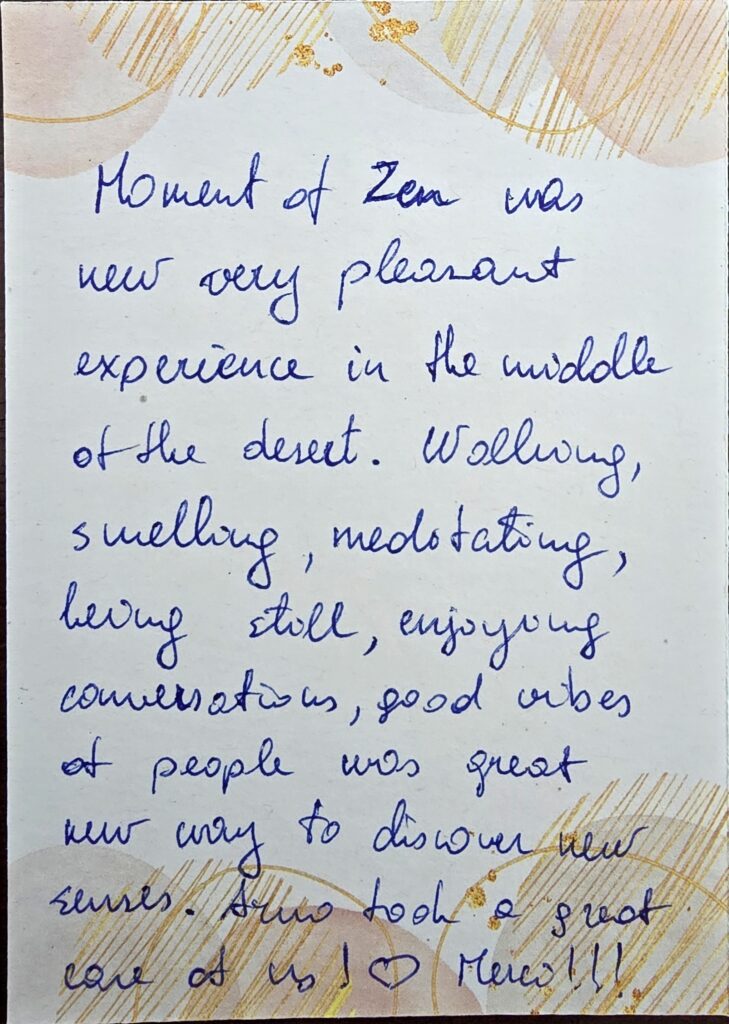 Moment of Zen was
new very pleasant
experience in the middle
of the desert. Walking,
smelling, meditating,
being still, enjoying
conversations, good vibes
of people was great
new way to discover new
senses. Arno took a great
care of us! ♡ Merci!!!